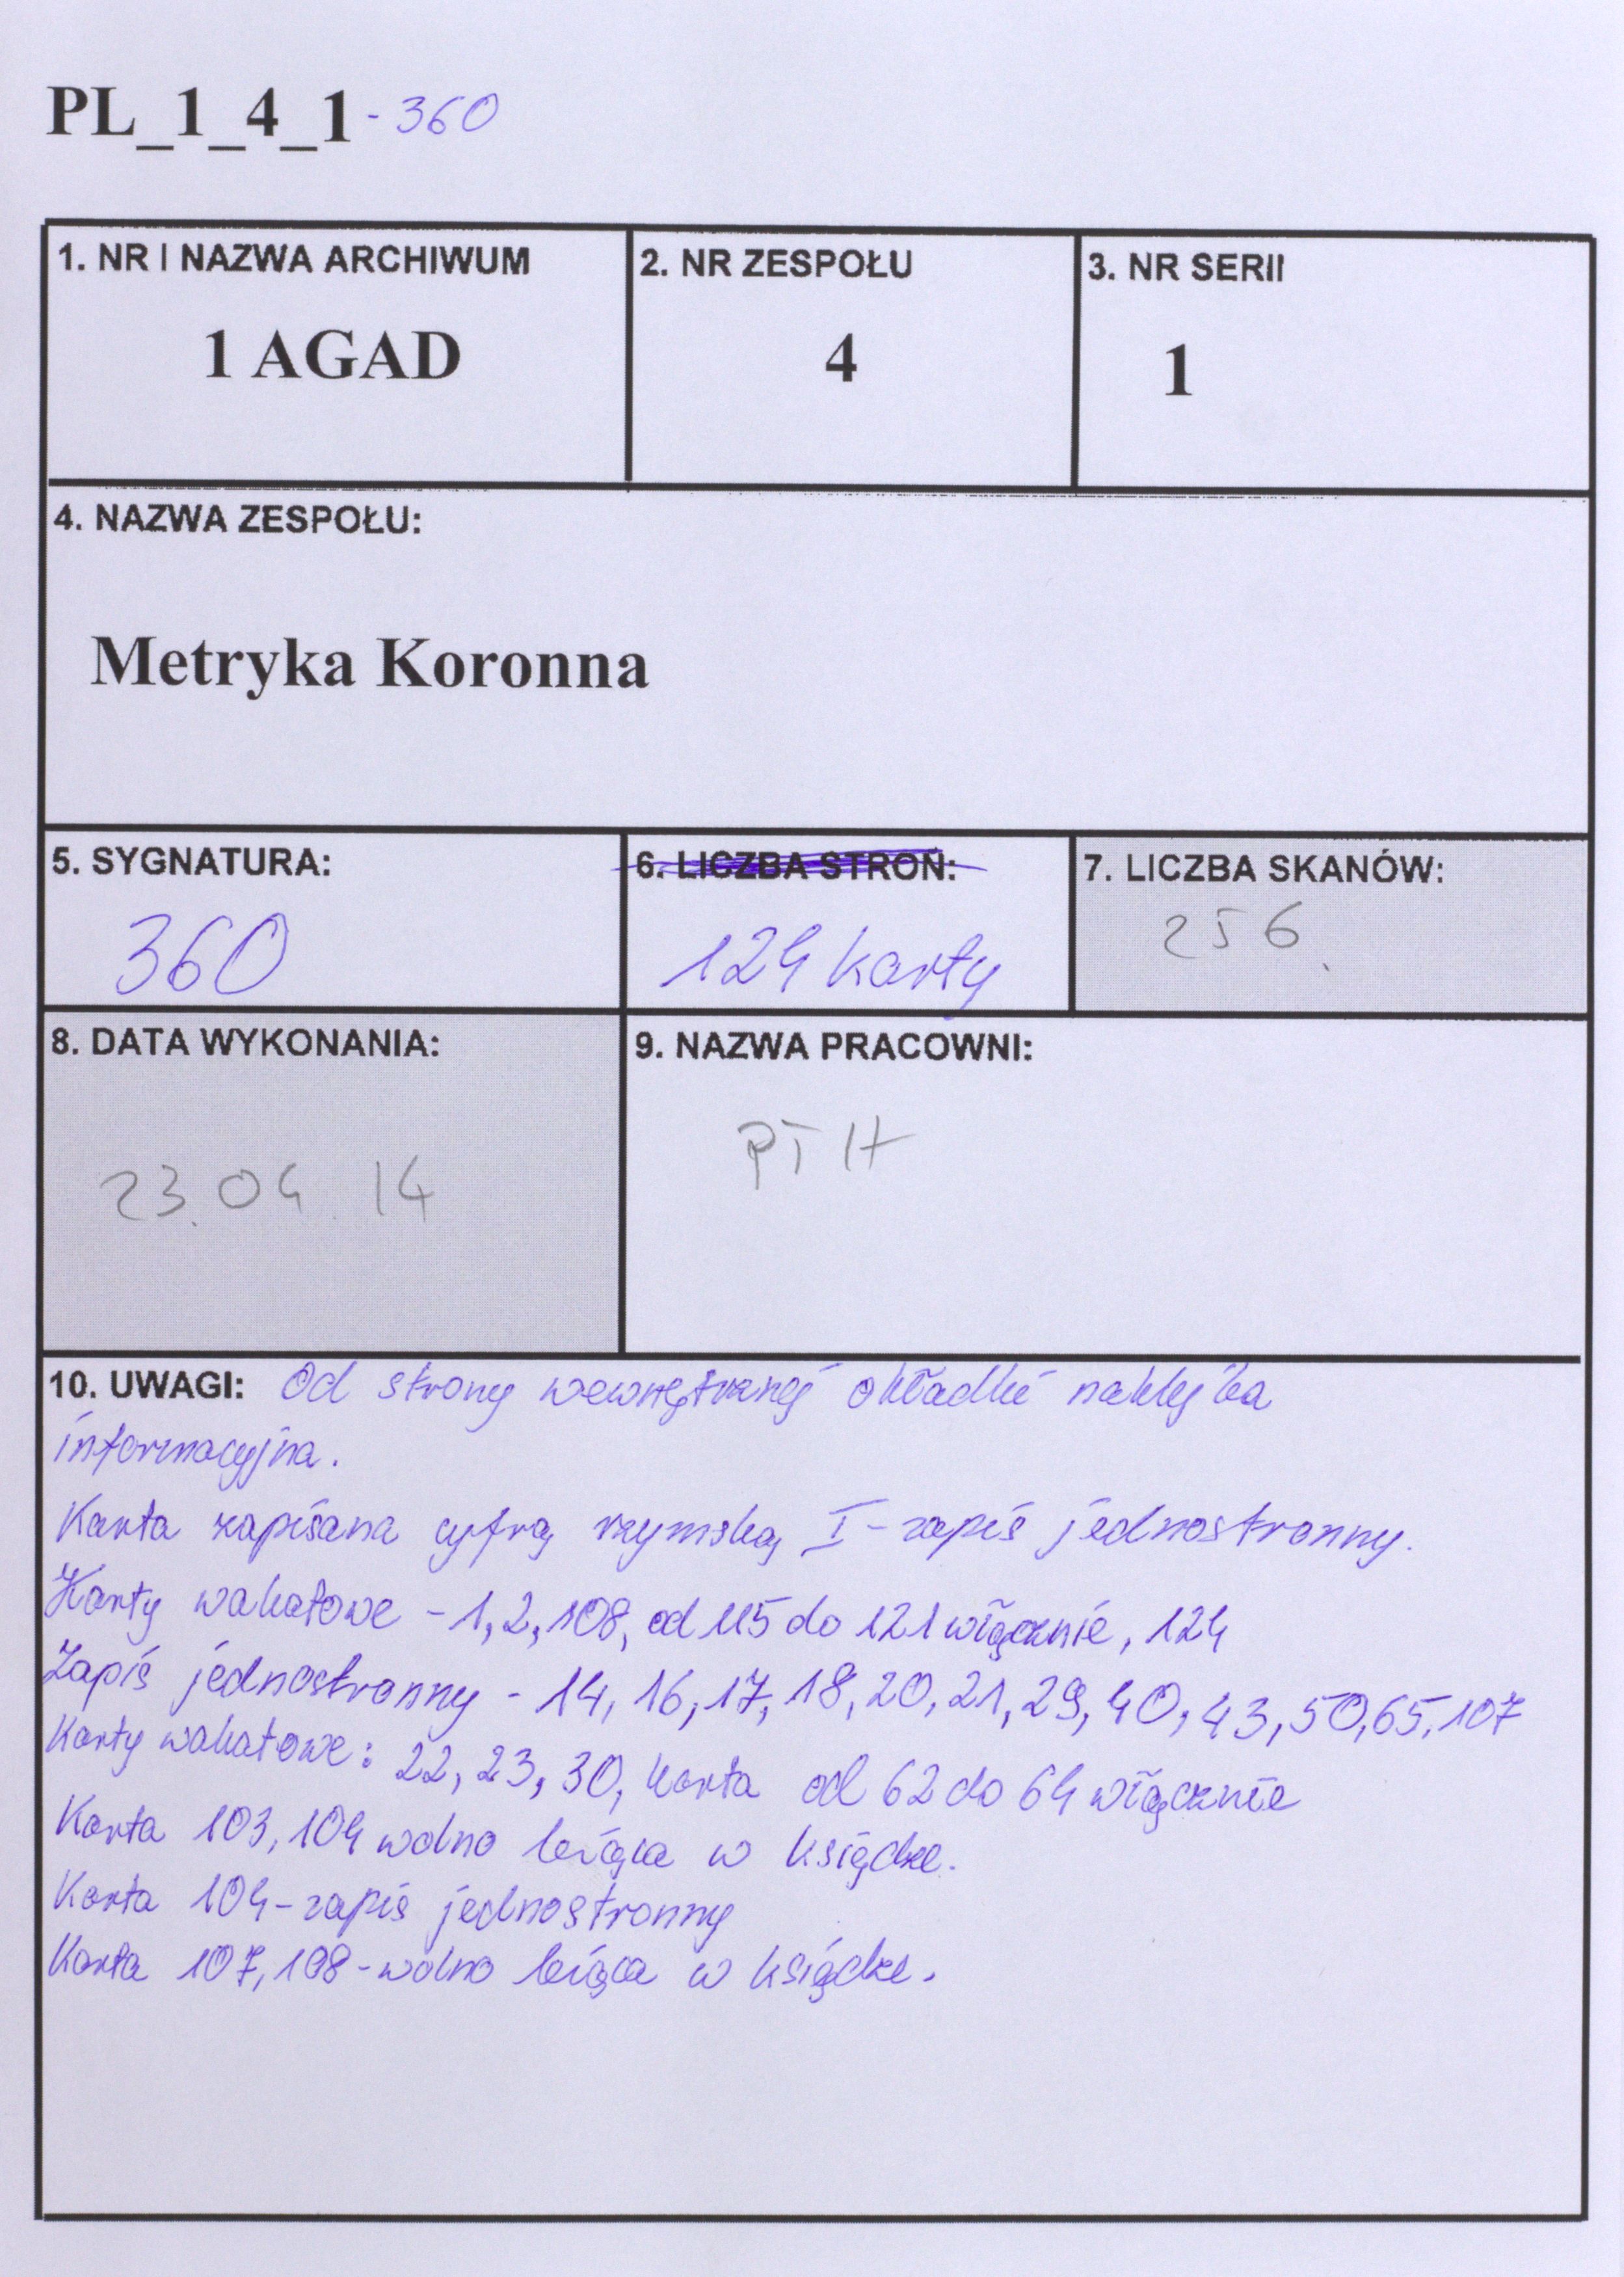 PL_1_4_1 - 360
1. NR I NAZWA ARCHIWUM
1 AGAD
2. NR ZESPOŁU
4
3. NR SERII
1
4. NAZWA ZESPOŁU:
Metryka Koronna
5. SYGNATURA:
360
6. LICZBA STRON:
124 karty
7. LICZBA SKANÓW:
256.
8. DATA WYKONANIA:
23.04.14
9. NAZWA PRACOWNI:
PTH
10. UWAGI: Od strony wewnętrznej okładki naklejka
informacyjna.
Karta zapisana cyfrą rzymską I - zapis jednostronny.
Karty wakatowe - 1, 2, 108, od 115 do 121 włącznie, 124
Zapis jednostronny - 14, 16, 17, 18, 20, 21, 29, 40, 43, 50, 65, 107
Karty wakatowe: 22, 23, 30, karta od 62 do 64 włącznie
Karta 103, 104 wolno leżąca w księdze.
Karta 104 - zapis jednostronny
Karta 107, 108 - wolno leżąca w księdze.